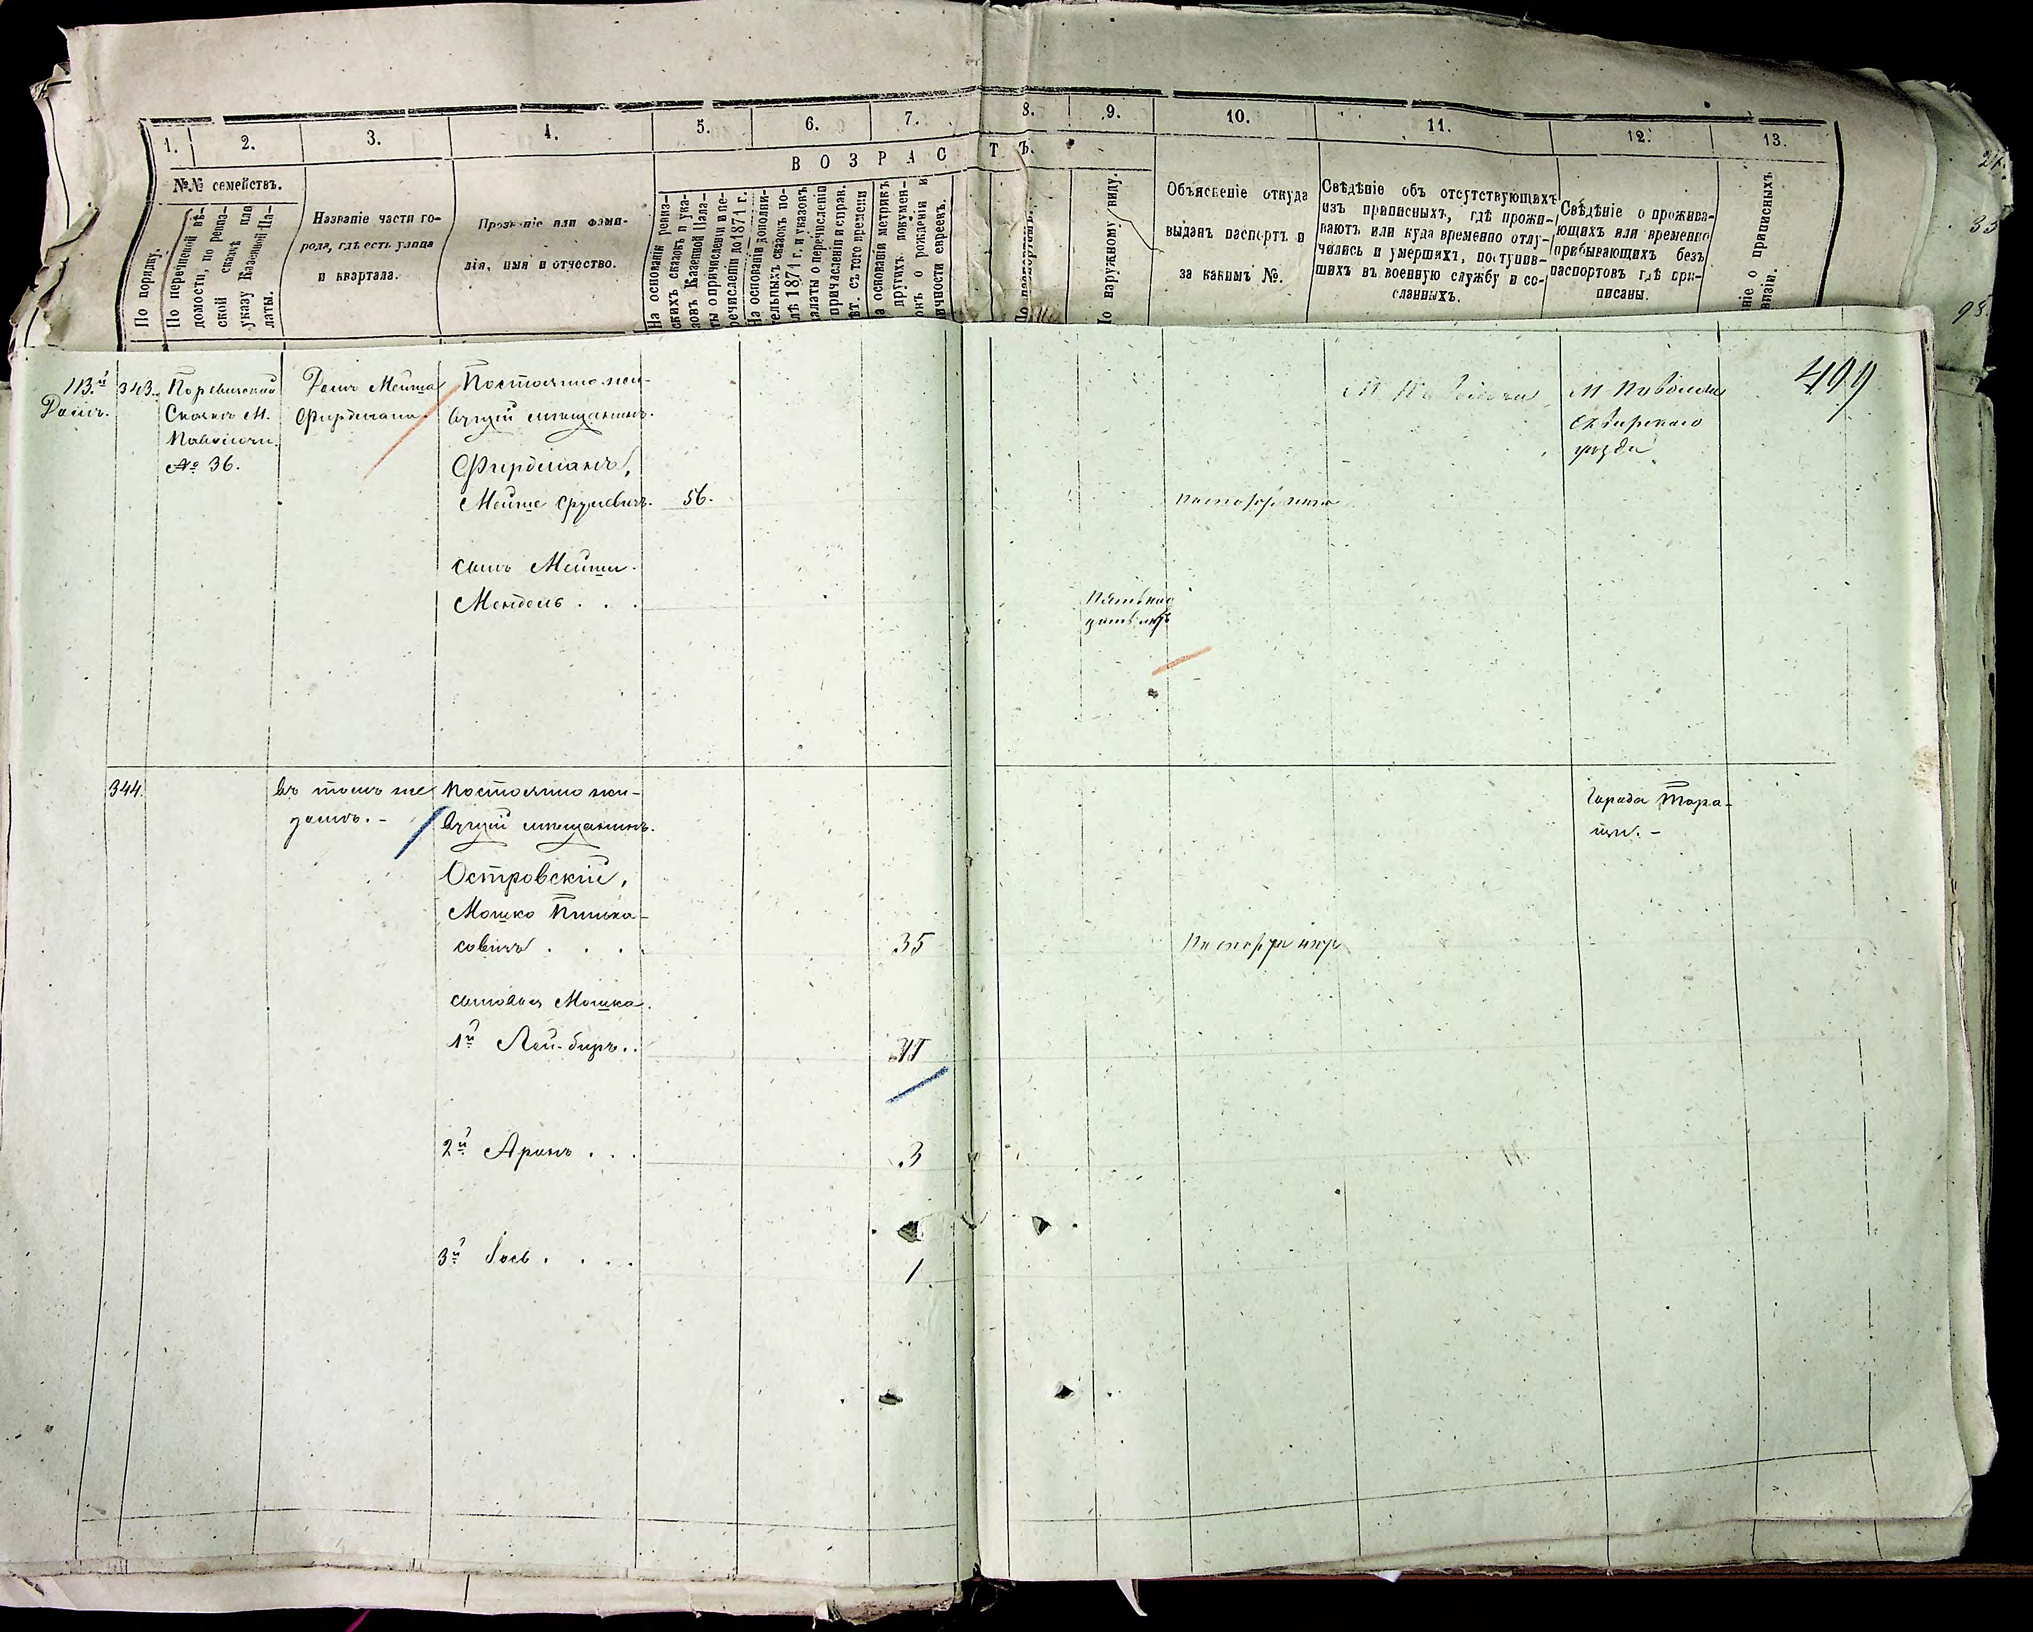 1. 2. 3. 4. 5. 6. 7. 8. 9. 10. 11. 12. 13.
В О З Р А С Т Ъ.
№№ семействъ.
По порядку.
По перечневой вѣ-
домости, по ревиз-
ской сказкѣ или
указу Казенной Па-
латы.
Названіе части го-
рода, гдѣ есть улица
и квартала.
Прозваніе или фами-
лія, имя и отчество.
На основаніи ревиз-
скихъ сказокъ и ука-
зовъ Казенной Пала-
ты о причисленіи и пе-
речисленіи до 1871 г.
На основаніи дополни-
тельныхъ сказокъ по-
лѣ 1871 г. и указовъ
палаты о перечисленіи
причисленіи и справ.
ѣт. съ того времени
а основаніи метрикъ
другихъ докумен-
о рожденіи и
ичности евреевъ.
по наружному виду.
Объясненіе откуда
выданъ паспортъ и
за какимъ №.
Свѣдѣніе объ отсутствующихъ
изъ приписныхъ, гдѣ прожи-
ваютъ или куда временно отлу-
чились и умершихъ, поступив-
шихъ въ военную службу и со-
сланныхъ.
Свѣдѣніе о прожива-
ющихъ или временно
прибывающихъ безъ
паспортовъ гдѣ при-
писаны.
ніе о приписныхъ
визіи.
24.
35
95.
499
113.й
Домъ.
343.
Сказкѣ М.
Паволочи.
№ 36.
Домъ Мейша
Фирдмана.
Постоянно жи-
вущій мѣщанинъ.
Фирдманъ,
Мейше Срулевичъ. 56.
М Паволочи
М Паволочи
Сквирскаго
уѣзда
сынъ Мейши.
Мендель . . .
Пятьнад
цать лѣтъ
344.
въ томъ же
домѣ. -
Постоянно жи-
вущій мѣщанинъ.
Города Тара-
щи. -
Островскій,
Мошко Пинька-
совичъ . . . . 35
сыновья Мошка.
1й Лей-Беръ..
2й Аронъ . . . 3
3й Іось . . . . 1